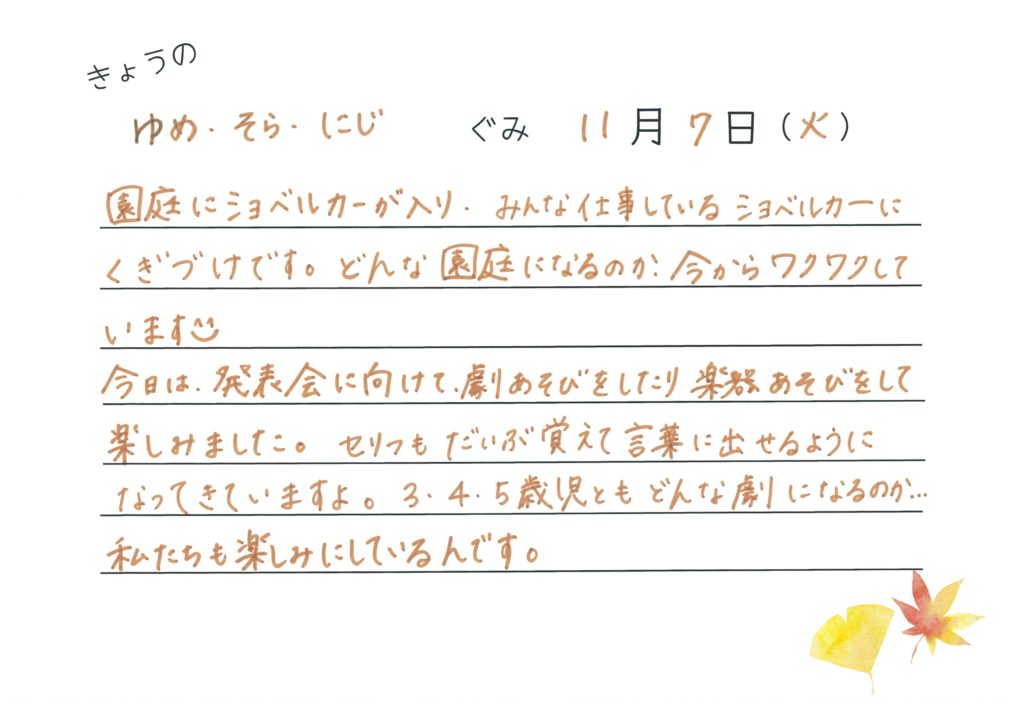 きょうの
ゆめ・そら・にじ ぐみ 11月7日(火)
園庭にショベルカーが入り、みんな仕事しているショベルカーに
くぎづけです。どんな園庭になるのか、今からワクワクして
います
今日は、発表会に向けて、劇あそびをしたり楽器あそびをして
楽しみました。セリフもだいぶ覚えて言葉に出せるように
なってきていますよ。3・4・5歳児ともどんな劇になるのか…
私たちも楽しみにしているんです。